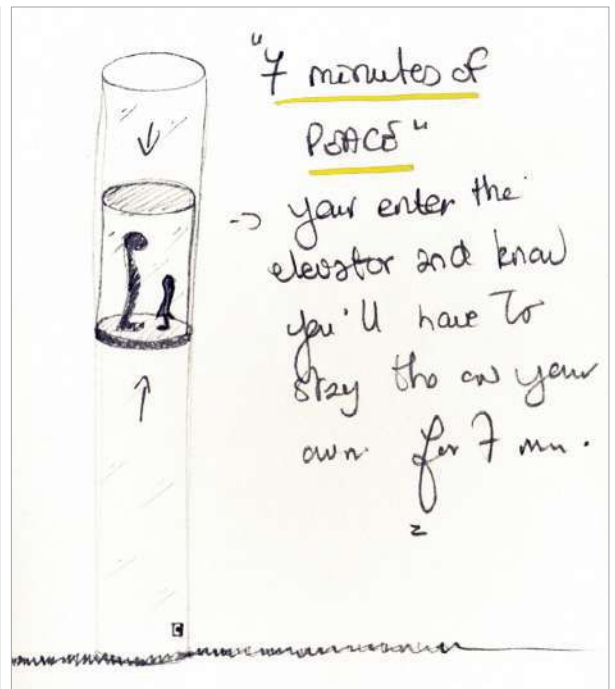 "7 minutes of
PEACE"
-> your enter the
elevator and know
you'll have to
stay on your
own. for 7 mn.